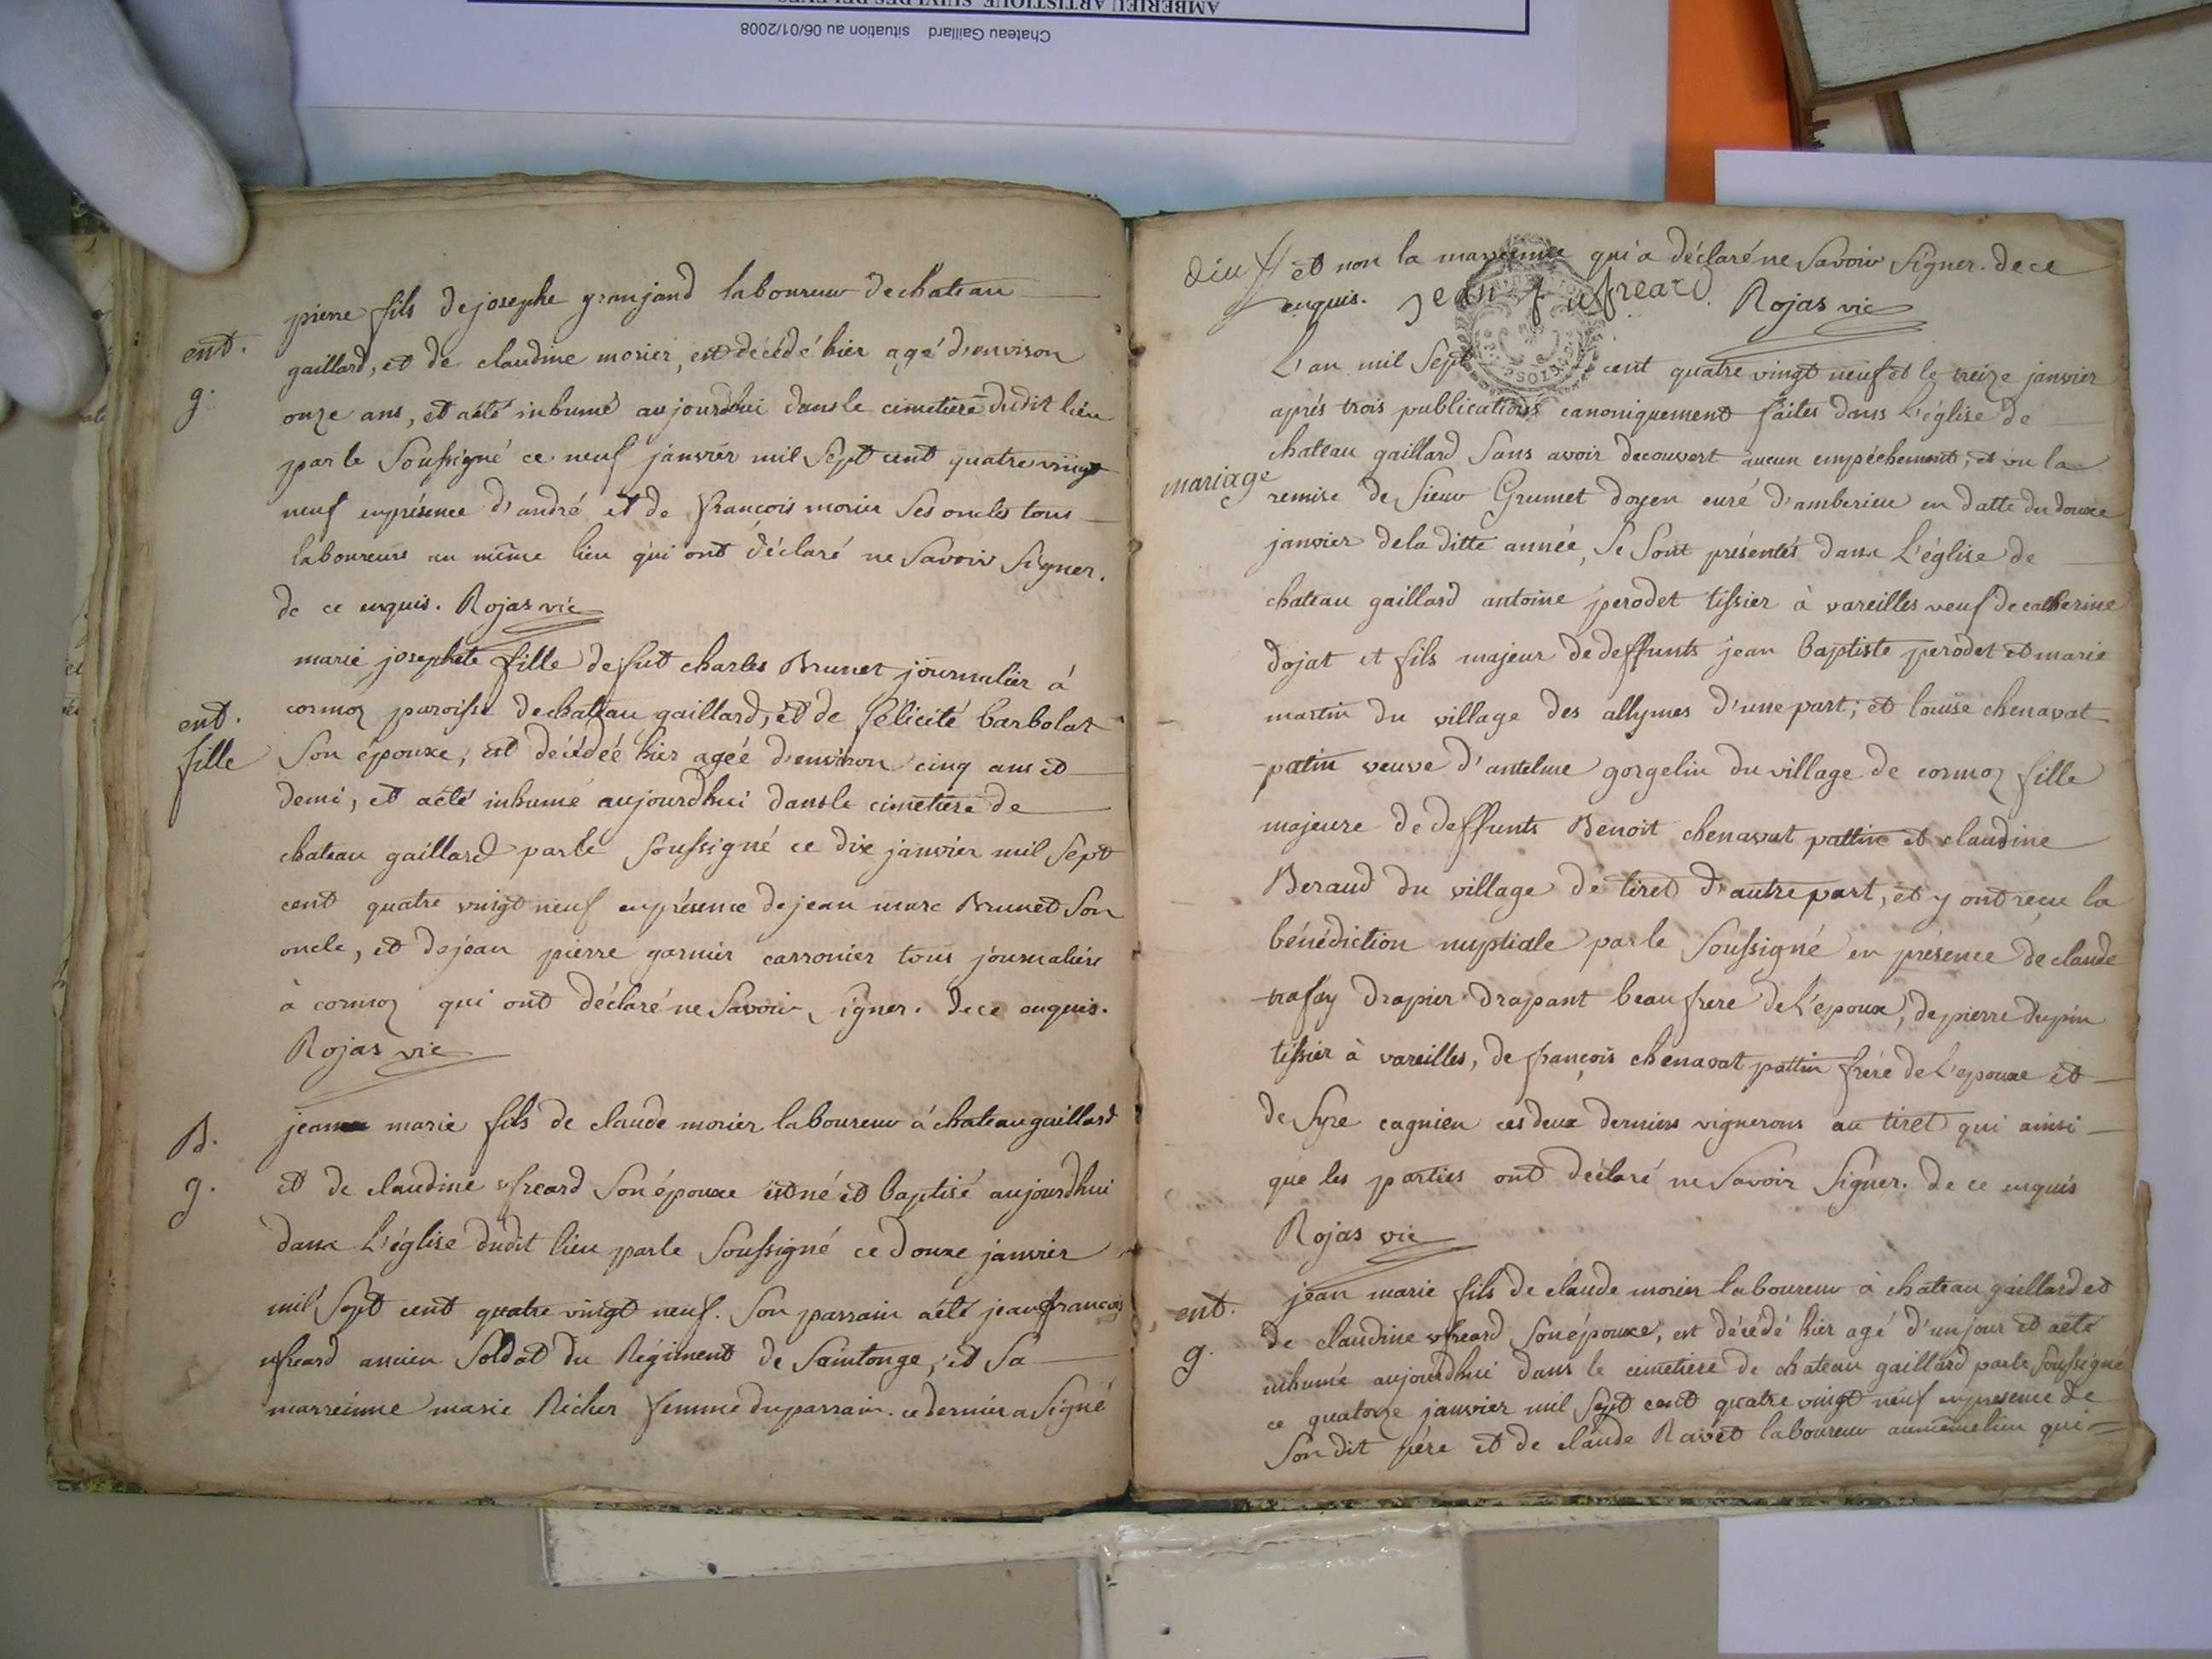 AMBERIEU ARTISTIQUE SUIVI DES RELEVES
Chateau Gaillard situation au 06/01/2008
pierre fils de josephe granjand laboureur de chateau
ent. gaillard, et de claudine morier, est décédé hier agé d'environ
g. onze ans, et a été inhumé aujourdhui dans le cimetiere dudit lieu
par le soussigné ce neuf janvier mil sept cent quatre vingt
neuf en présence d'andré et de françois morier ses oncles tous
laboureurs au même lieu qui ont déclaré ne savoir signer.
de ce enquis. Rojas vic
marie josephete fille de fut charles Brunet journalier à
ent. cormoz paroisse de chateau gaillard, et de félicité barbolat
fille son épouxe, est décédéé hier agéé d'environ cinq ans et
demi, et a été inhumé aujourdhui dans le cimetiere de
chateau gaillard par le soussigné ce dix janvier mil sept
cent quatre vingt neuf en présence de jean marc Brunet son
oncle, et de jean pierre garnier carronier tous journaliers
à cormoz qui ont déclaré ne savoir signer. de ce enquis.
Rojas vic
B. jean marie fils de claude morier laboureur à chateau gaillard
g. et de claudine ufreard son épouxe est né et baptisé aujourdhui
dans L'église dudit lieu par le soussigné ce douxe janvier
mil sept cent quatre vingt neuf. son parrain a été jean françois
ufreard ancien soldat du Régiment de saintonge, et sa
marreinne marie Richer femme du parrain. ce dernier a signé
et non la marreinne qui a déclaré ne savoir signer. de ce
enquis. jean f ufreard. Rojas vic
L'an mil sept cent quatre vingt neuf et le treize janvier
aprés trois publications canoniquement faites dans L'église de
chateau gaillard sans avoir decouvert aucun empéchement, et vu la
mariage remise de sieur Grumet doyen curé d'amberieu en datte du douxe
janvier de la ditte année, se sont présentés dans L'église de
chateau gaillard antoine perodet tissier à vareilles veuf de catherine
dojat et fils majeur de deffunts jean baptiste perodet et marie
martin du village des allymes d'une part; et louise chenavat
patin veuve d'antelme gorgelin du village de cormoz fille
majeure de deffunts Benoit chenavat pattin et claudine
Beraud du village de tiret d'autre part, et y ont reçu la
bénédiction nuptiale par le soussigné en présence de claude
trafay drapier drapant beau frere de L'epoux, de pierre dupin
tissier à vareilles, de françois chenavat pattin frére de L'epouxe et
de syre cagnien ces deux derniers vignerons au tiret qui ainsi
que les parties ont déclaré ne savoir signer. de ce enquis
Rojas vic
ent. jean marie fils de claude morier laboureur à chateau gaillard et
de claudine ufreard son épouxe, est décédé hier agé d'un jour et a été
g. inhumé aujourdhui dans le cimetiere de chateau gaillard par le soussigné
ce quatorze janvier mil sept cent quatre vingt neuf en presence de
son dit pére et de claude Ravet laboureur au même lieu qui